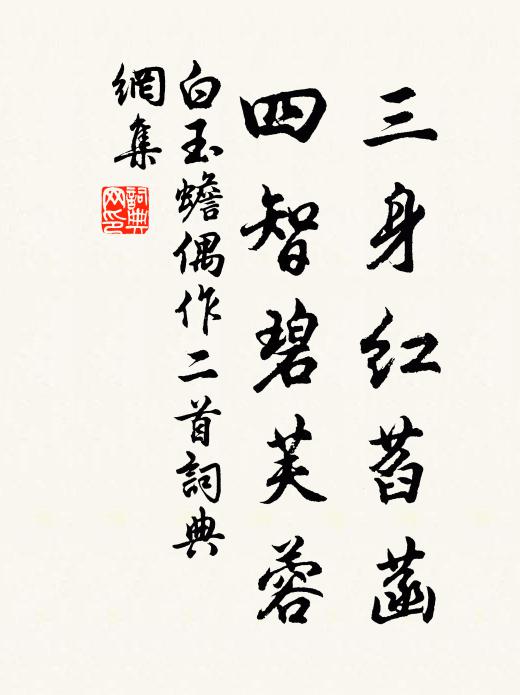 三身紅萏菡
四智碧芙蓉
白玉蟾偶作二首詞典
網集
詞典网印